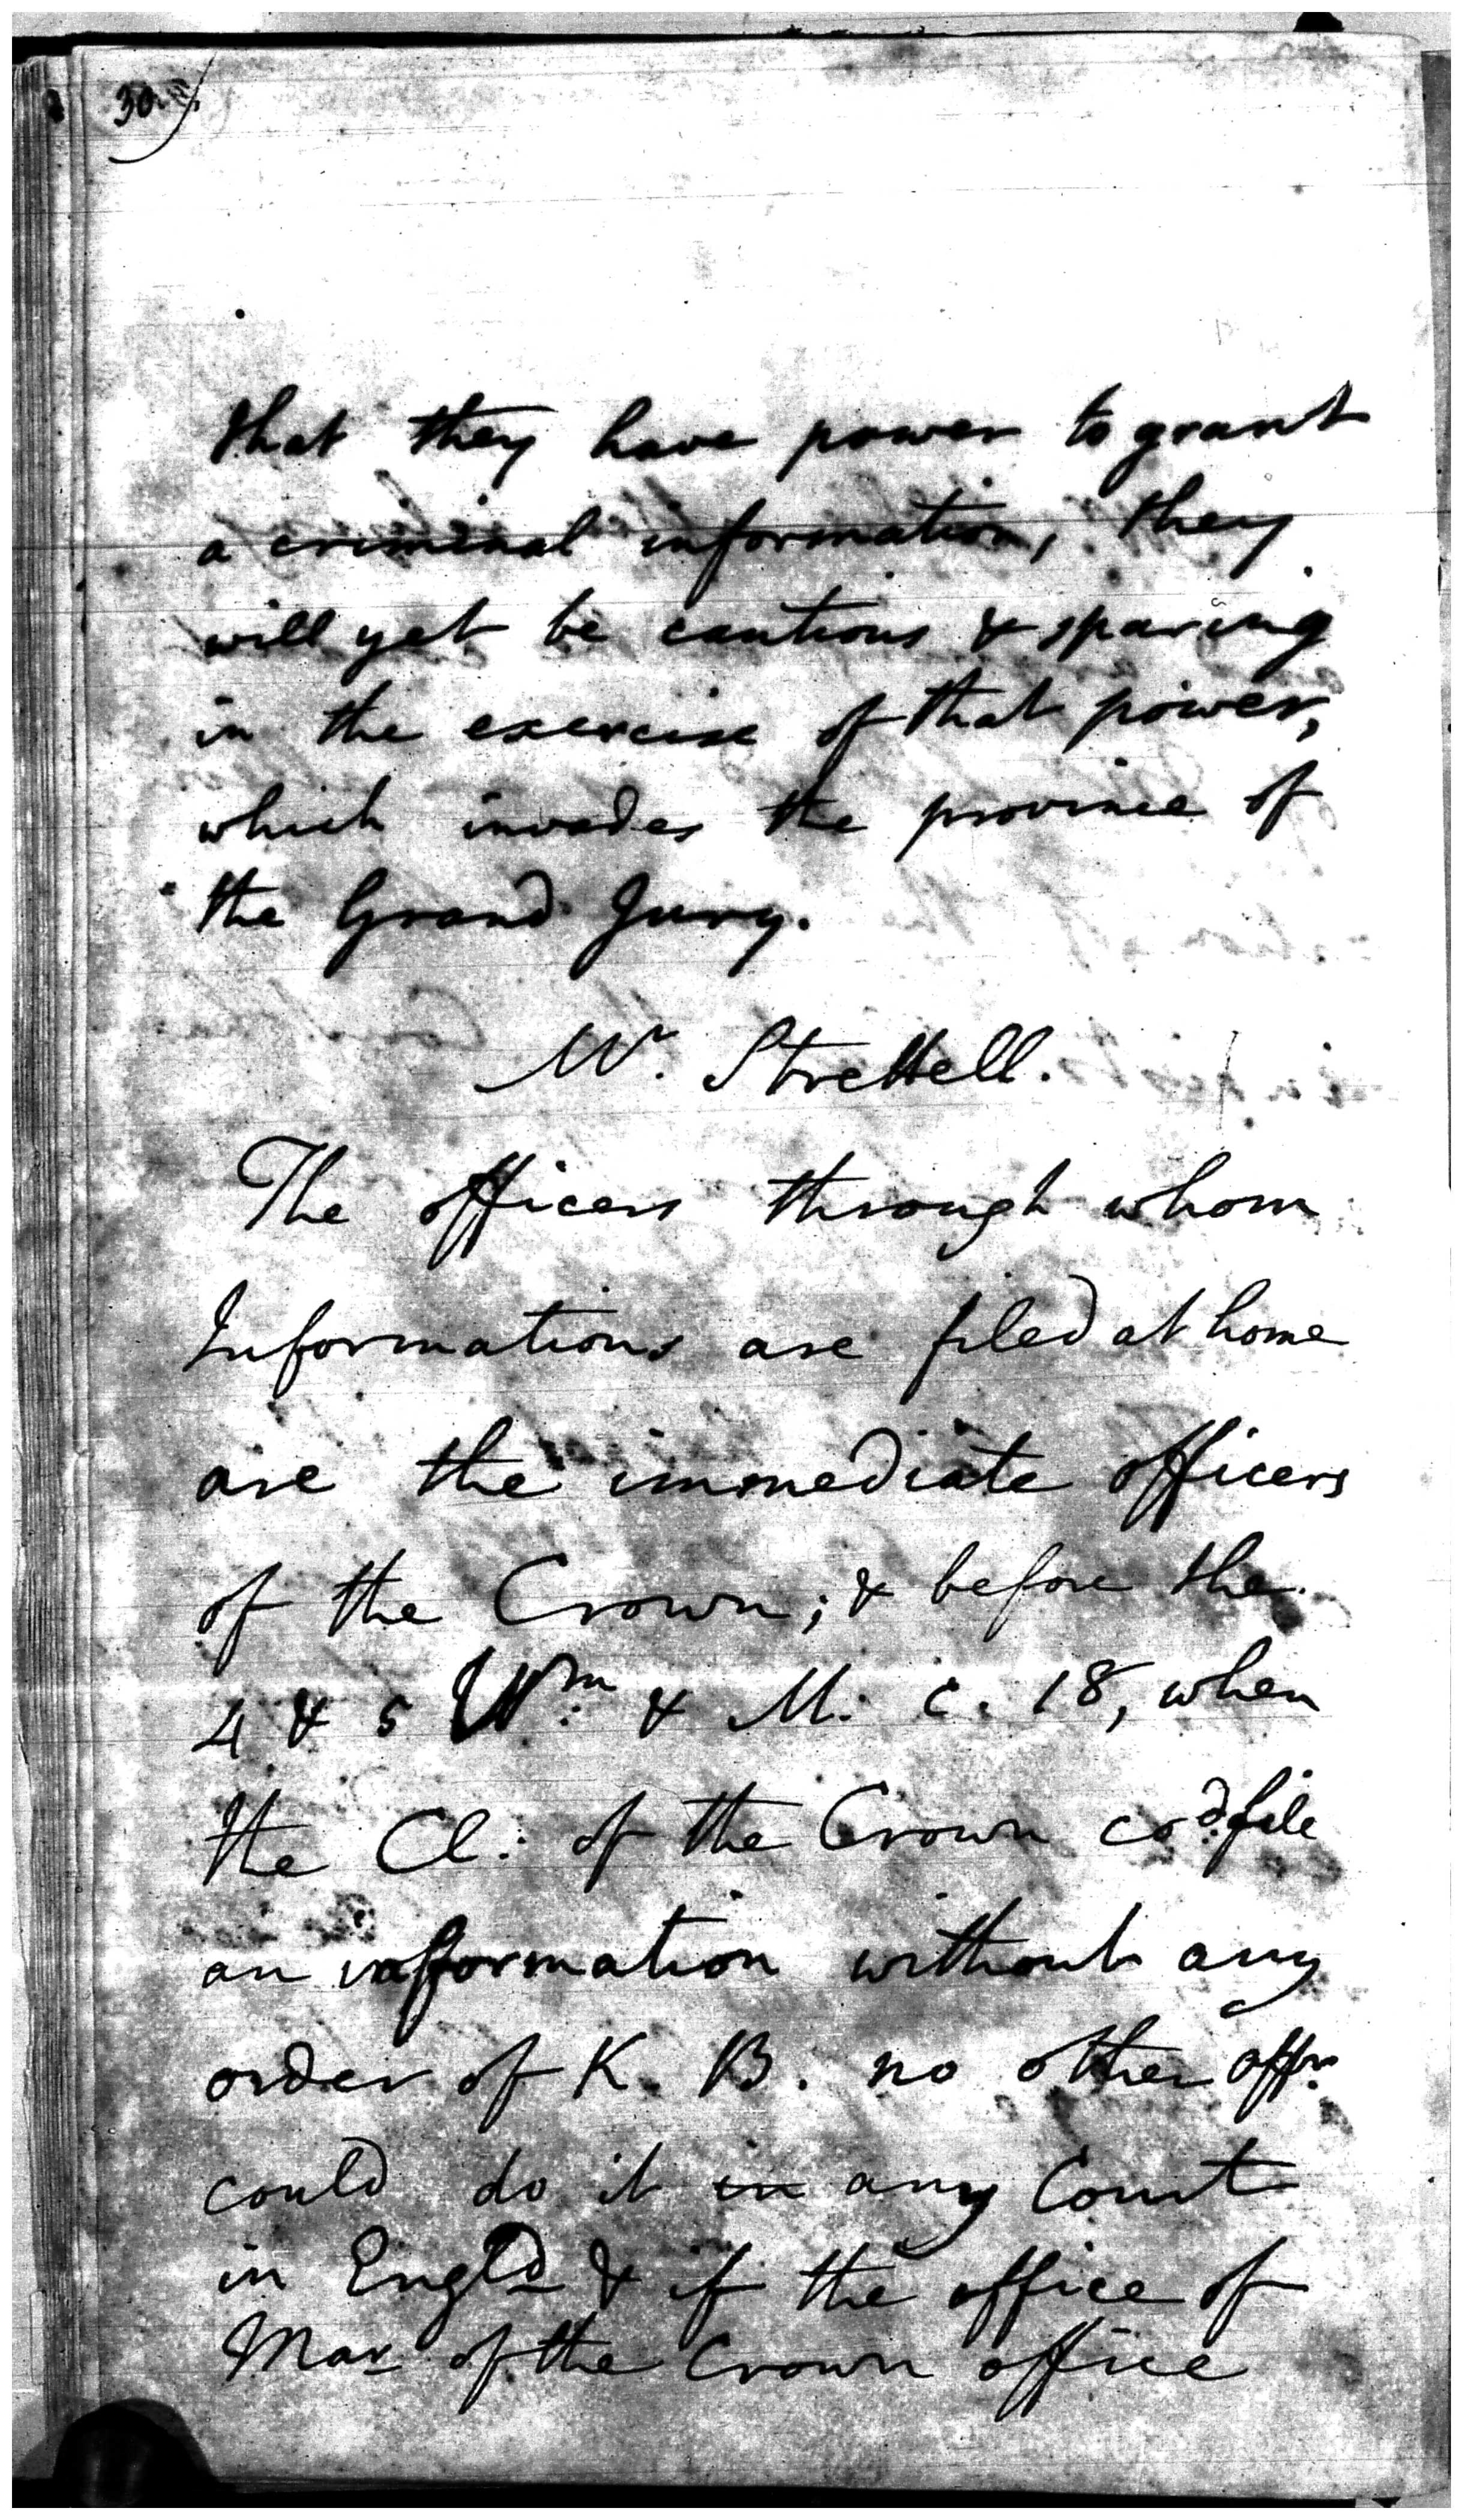 30
that they have power to grant
a criminal information, they
will yet be cautious & sparing
in the exercise of that power,
which invades the province of
the Grand Jury.
Mr. Strettell.
The officers through whom
Informations are filed at home
are the immediate officers
of the Crown; & before the
4 & 5 Wm: & M: c. 18, when
the Cl: of the Crown cod: file
an information without any
order of K. B. no other offr.
could do it in any Court
in Engld & if the office of
Mar of the Crown office